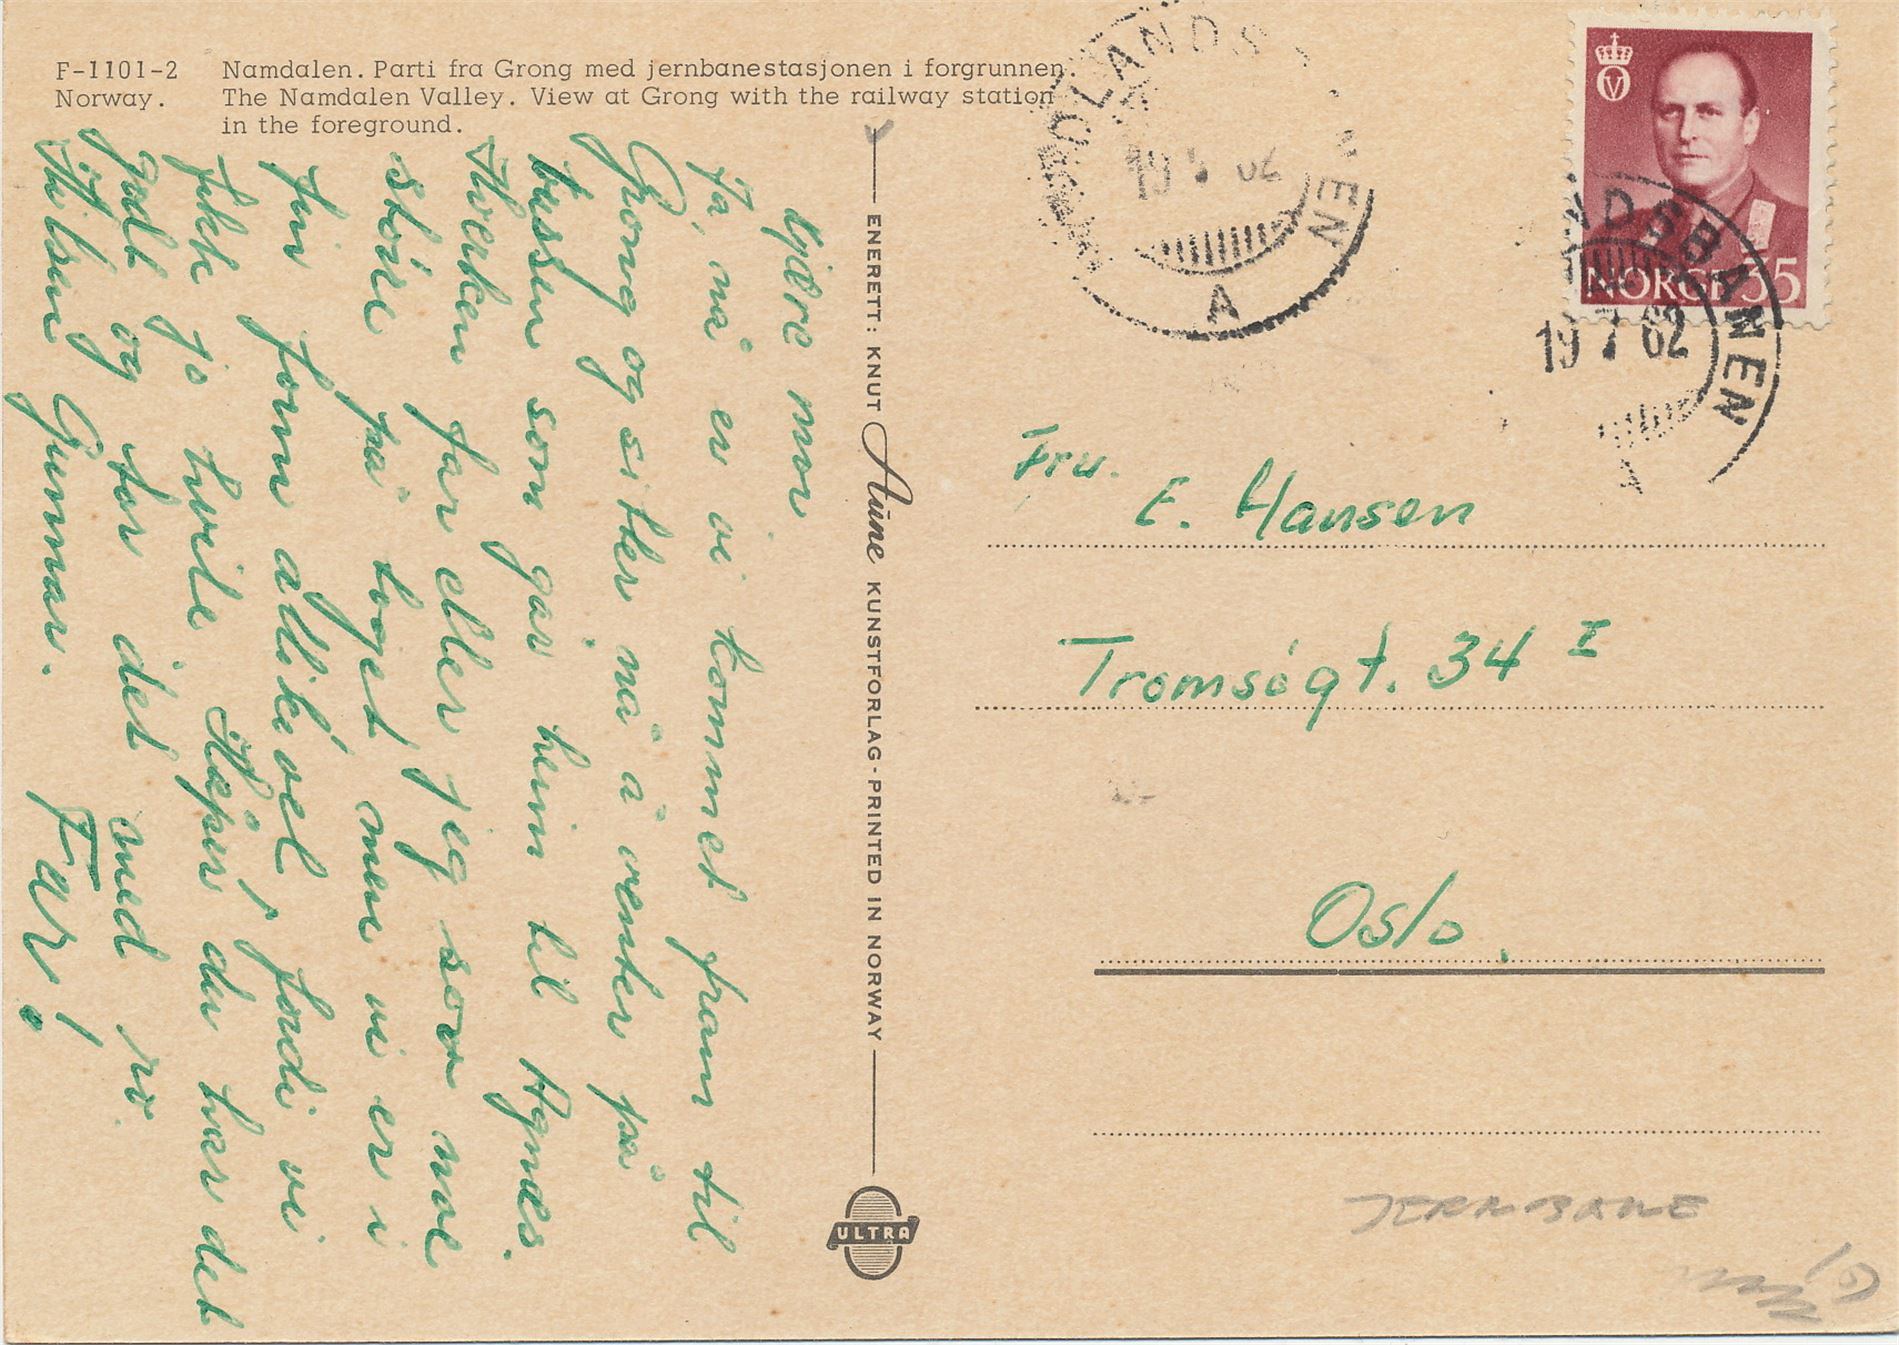 F-1101-2 Namdalen. Parti fra Grong med jernbanestasjonen i forgrunnen.
Norway. The Namdalen Valley. View at Grong with the railway station
in the foreground.
Kjære mor
Ja, nå er vi kommet fram til
Grong og sitter nå å venter på
bussen som går heim til Agnes.
Hverken far eller jeg sov noe
større på toget men vi er i
fin form allikevel, fordi vi
fikk jo hvile. Håper du har det
godt og tar det med ro.
Hilsen Gunnar. Far!
ENERETT: KNUT Aune KUNSTFORLAG - PRINTED IN NORWAY
ULTRA
NORGE 35
LANDS
NEN
19
A
NDSBANEN
19 7 62
Fru.
E. Hansen
Tromsøgt. 34 I
Oslo.
JERNBANE